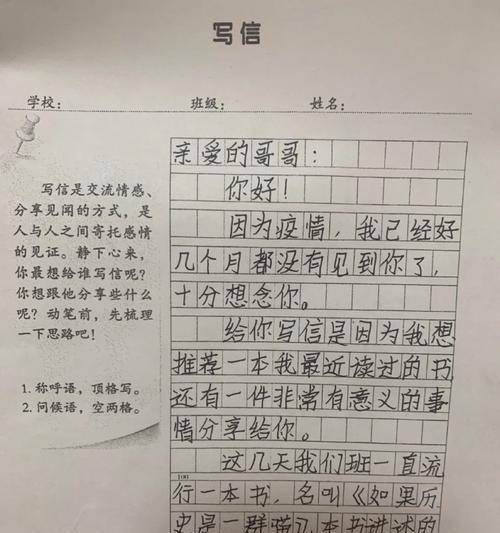 写信
学校：
班级：
姓名：
写信是交流情感、
分享见闻的方式，是
人与人之间寄托感情
的见证。静下心来，
你最想给谁写信呢？
你想跟他分享些什么
呢？动笔前，先梳理
一下思路吧！
1. 称呼语，顶格写。
2. 问候语，空两格。
亲爱的哥哥：
你好！
因为疫情，我已经好
几个月都没有见到你了，
十分想念你。
给你写信是因为我想
推荐一本我最近读过的书
还有一件非常有意义的事
情分享给你。
这几天我们班一直流
行一本书，名叫《如果历
史是一群喵》，本书讲述的